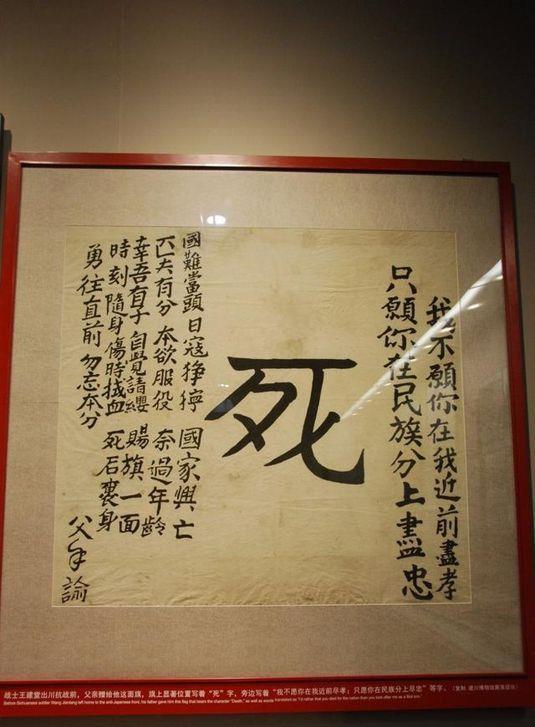 我不願你在我近前盡孝
只願你在民族分上盡忠
死
國難當頭 日寇猙獰 國家興亡
匹夫有分 本欲服役 奈過年齡
幸吾有子 自覺請纓 賜旗一面
時刻隨身 傷時拭血 死后裹身
勇往直前 勿忘本分
父手諭
战士王建堂出川抗战前，父亲赠给他这面旗，旗上显著位置写着“死”字，旁边写着“我不愿你在我近前尽孝；只愿你在民族分上尽忠”等字。（复制 建川博物馆
Before Sichuanese soldier Wang Jiantang left home to the anti-Japanese front, his father gave him this flag that bears the character "Death," as well as words translated as "I'd rather that you died for the nation than you look after me as a filial son."